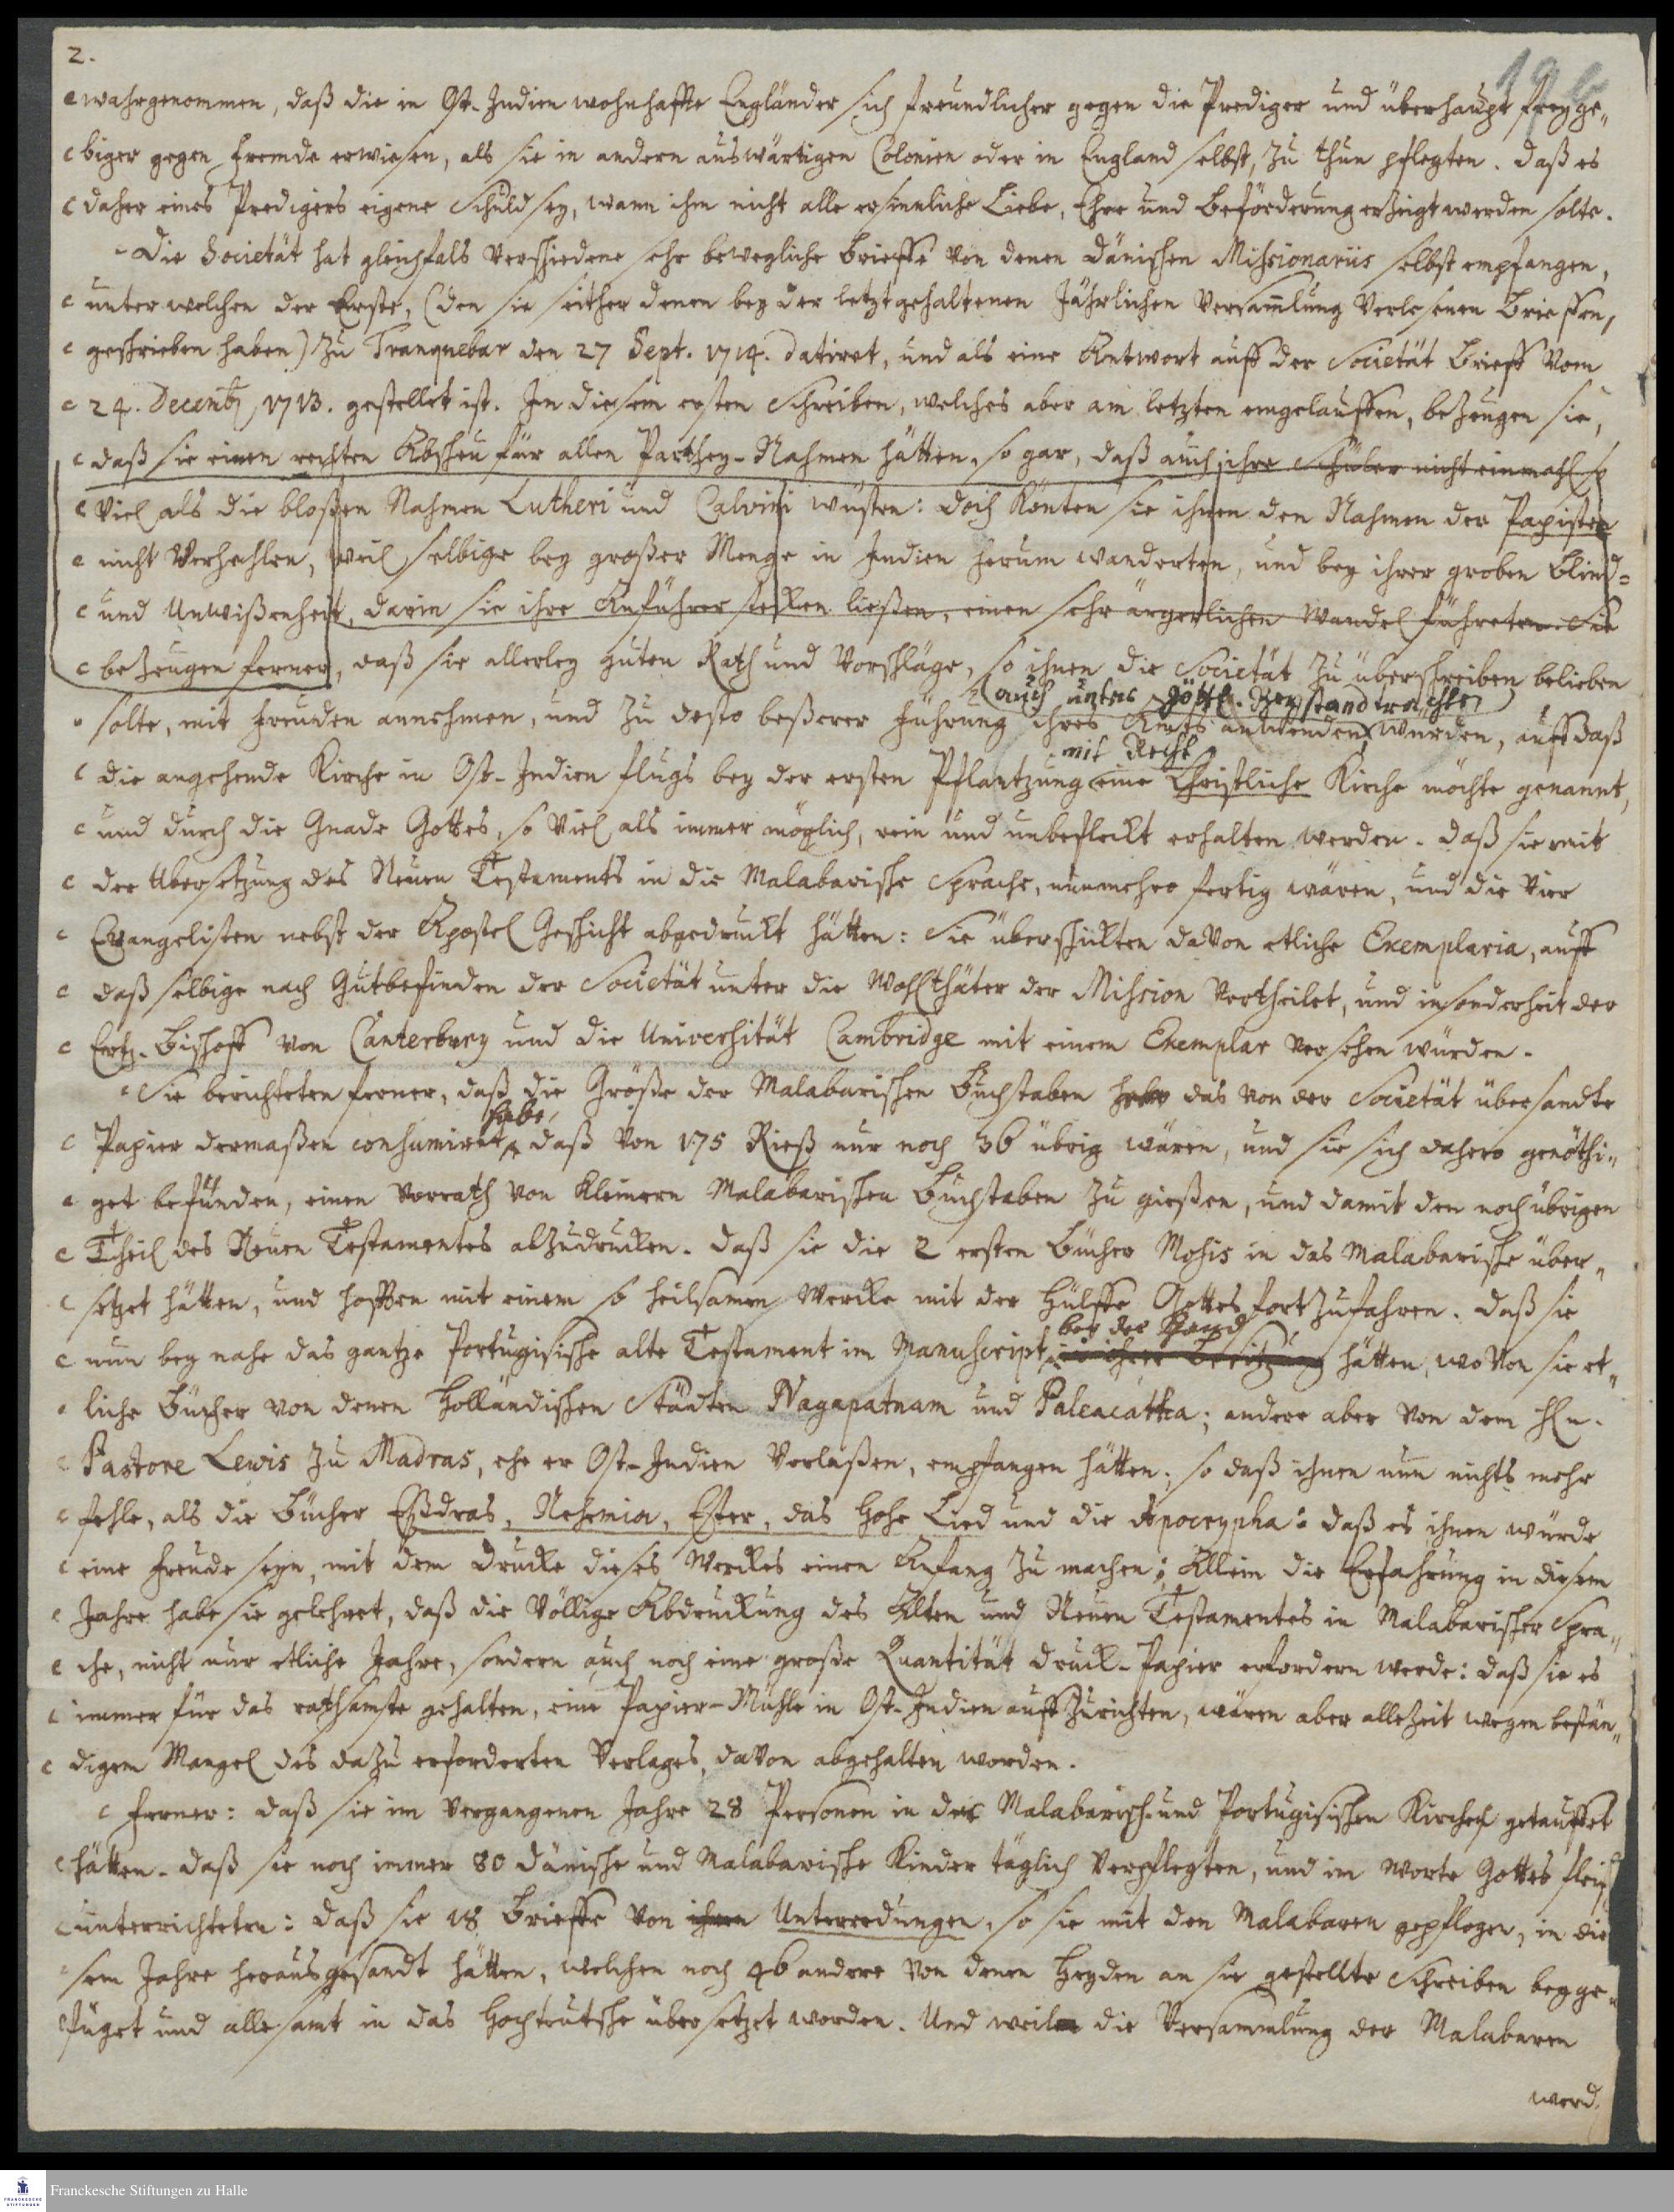 2.
wahrgenommen, daß die in Ost-Indien wohnhaffte Engländer sich freundlicher gegen die Prediger und überhaupt freyge„
biger gegen Fremde erwiesen, als sie in andern auswärtigen Colonien oder in England selbst, zu thun pflegten. Daß es
daher eines Predigers eigene Schuld sey, wann ihm nicht alle ersinnliche Liebe, Ehre und Beförderung erzeigt werden solte.
Die Societät hat gleichfals verschiedene sehr bewegliche Brieffe von denen Dänischen Missionariis selbst empfangen,
unter welchen der Erste, (den sie seither denen bey der letztgehaltenen Jährlichen Versam̄lung verlesenen Brieffen,
geschrieben haben) zu Tranquebar den 27 Sept. 1714. datiret, und als eine Antwort auff der Societät Brieff vom
24. Decembr 1713. gestellet ist. In diesem ersten Schreiben, welches aber am letzten eingelauffen, bezeugen sie,
daß sie einen rechten Abscheu für allen Parthey-Nahmen hätten, so gar, daß auch ihre Schüler nicht einmahl so
viel als die bloßen Nahmen Lutheri und Calvini wüsten: doch könten sie ihnen den Nahmen der Papisten
nicht verhehlen, weil selbige bey großer Menge in Indien herum wanderten, und bey ihrer groben Blind=
und Unwißenheit, darin sie ihre Anführer stecken ließen, einen sehr ärgerlichen Wandel führeten. Sie
bezeugen ferner, daß sie allerley guten Rath und Vorschläge, so ihnen die Societät zu überschreiben belieben
(auch unters Göttl. Beystand trachten)
solte, mit Freuden annehmen, und zu desto beßerer Führung ihres Amts anwenden würden, auff daß
mit Recht
die angehende Kirche in Ost-Indien flugs bey der ersten Pflantzung eine Christliche Kirche möchte genannt,
und durch die Gnade Gottes, so viel als immer möglich, rein und unbefleckt erhalten werden. Daß sie mit
der Ubersetzung des Neuen Testaments in die Malabarische Sprache, nunmehro fertig wären, und die vier
Evangelisten nebst der Apostel Geschicht abgedruckt hätten: Sie überschickten davon etliche Exemplaria, auff
daß selbige nach Gutbefinden der Societät unter die Wohlthäter der Mission vertheilet, und insonderheit der
Ertz-Bischoff von Canterbury und die Universität Cambridge mit einem Exemplar versehen würden.
Sie berichteten ferner, daß die Größe der Malabarischen Buchstaben habe das von der Societät übersandte
habe,
Papier dermaßen consumiret, daß von 175 Rieß nur noch 36 übrig wären, und sie sich dahero genöthi„
get befunden, einen Vorrath von kleinern Malabarischen Buchstaben zu gießen, und damit den noch übrigen
Theil des Neuen Testamentes abzudrucken. Daß sie die 2 ersten Bücher Mosis in das Malabarische über„
setzet hätten, und hofften mit einem so heilsamen Wercke mit der Hülffe Gottes fortzufahren. Daß sie
bey der Hand
nun bey nahe das gantze Portugisische alte Testament im Manuscript in ihrer Besitzung hätten, wovon sie et„
liche Bücher von denen Holländischen Städten Nagapatnam und Paleacatta; andere aber von dem Hln.
Pastore Lewis zu Madras, ehe er Ost-Indien verlaßen, empfangen hätten; so daß ihnen nun nichts mehr
fehle, als die Bücher Esdras, Nehemia, Ester, das Hohe Lied und die Apocrypha: daß es ihnen würde
eine Freude seyn, mit dem Drucke dieses Werckes einen Anfang zu machen; Allein die Erfahrung in diesem
Jahre habe sie gelehret, daß die völlige Abdruckung des Alten und Neuen Testamentes in Malabarischer Spra„
che, nicht nur etliche Jahre, sondern auch noch eine große Quantität Druck-Papier erfordern werde: daß sie es
immer für das rathsamste gehalten, eine Papier-Mühle in Ost-Indien auffzurichten, wären aber allezeit wegen bestän„
digem Mangel des dazu erforderten Verlages, davon abgehalten worden.
Ferner: daß sie im vergangenen Jahre 28 Personen in der Malabarisch und Portugisischen Kirchen getauffet
hätten. Daß sie noch immer 80 Dänische und Malabarische Kinder täglich verpflegten, und im Worte Gottes
unterrichteten: daß sie 18 Brieffe von ihren Unterredungen, so sie mit den Malabaren gepflogen, in die
sem Jahre herausgesandt hätten, welchen noch 46 andere von denen Heyden an sie gestellte Schreiben beyge„
füget und allesamt in das Hochteutsche übersetzet worden. Und weil die Versammlung der Malabaren
werd.
Franckesche Stiftungen zu Halle